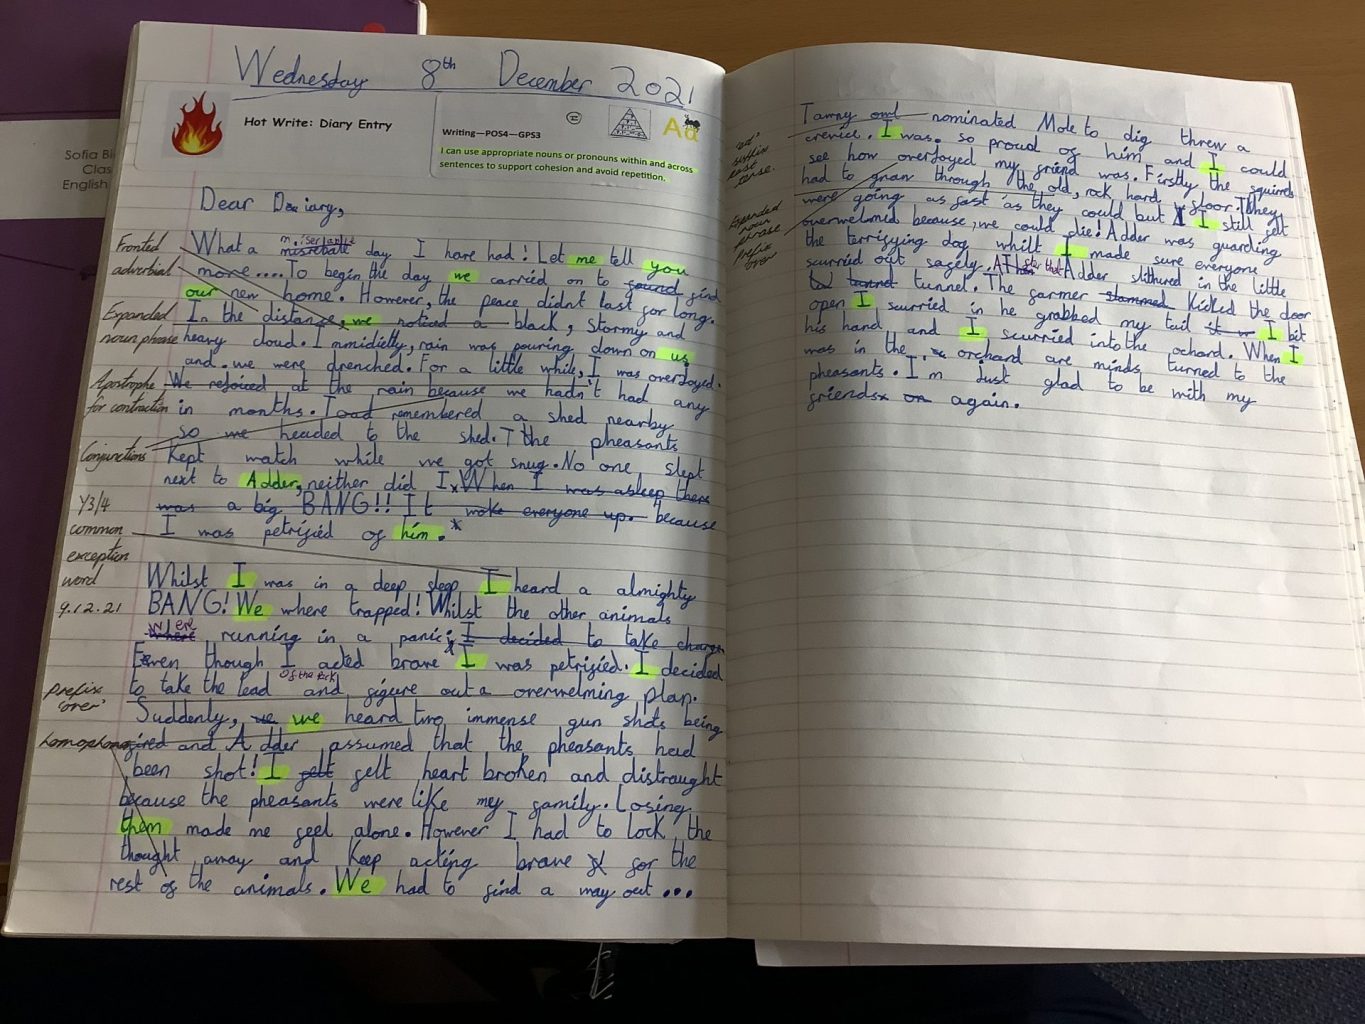 Sofia Bi
Clas
English
Wednesday 8th December 2021
Hot Write: Diary Entry
Writing—POS4—GPS3
I can use appropriate nouns or pronouns within and across
sentences to support cohesion and avoid repetition.
Aa
Dear Deiary,
Fronted
adverbial
Expanded
noun phrase
Apostrophe
for contraction
Conjunctions
Y3/4
common
exception
word
9.12.21
prefix
'over'
homophone
What a day I have had! Let me tell you
more.... To begin the day we carried on to find
our new home. However, the peace didnt last for long.
In the distance, we noticed a black, Stormy and
heavy cloud. Immidietly, rain was pouring down on us
and we were drenched. For a little while, I was overJoyed.
We rejoiced at the rain because we hadn't had any
in months. Toad remembered a shed nearby
so we headed to the shed. The pheasants
Kept watch while we got snug. No one slept
next to Adder, neither did I. When I was asleep there
was a big BANG!! It woke everyone up. because
I was petrified of him.*
Whilst I was in a deep sleep I heard a almighty
BANG! We where trapped! Whilst the other animals
were
where running in a panic; I decided to take charge
Even though I acted brave I was petrified. I decided
of the pack
to take the lead and figure out a overwelming plan.
Suddenly, we we heard two immense gun shots being
fired and Adder assumed that the pheasants had
been shot! I felt felt heart broken and distraught
because the pheasants were like my family. Losing
them made me feel alone. However I had to lock the
thought away and Keep acting brave for the
rest of the animals. We had to find a way out...
'ed'
suffix
past
tense.
Expanded
noun
phrase
prefix
over
Tawny owl nominated Mole to dig threw a
crevice. I was so proud of him and I could
see how overJoyed my friend was. Firstly the squirrels
had to gnaw through the old, rock hard floor. They
were going as fast as they could but I I still felt
overwelmed because, we could die! Adder was guarding
the terrifying dog whilt I made sure everyone
scurried out safely. After that Adder slithured in the little
tunnel tunnel. The farmer slammed Kicked the door
open I scurried in he grabbed my tail I bit
his hand and I scurried into the ochard. When I
was in the orchard are minds turned to the
pheasants. I'm Just glad to be with my
friends on again.